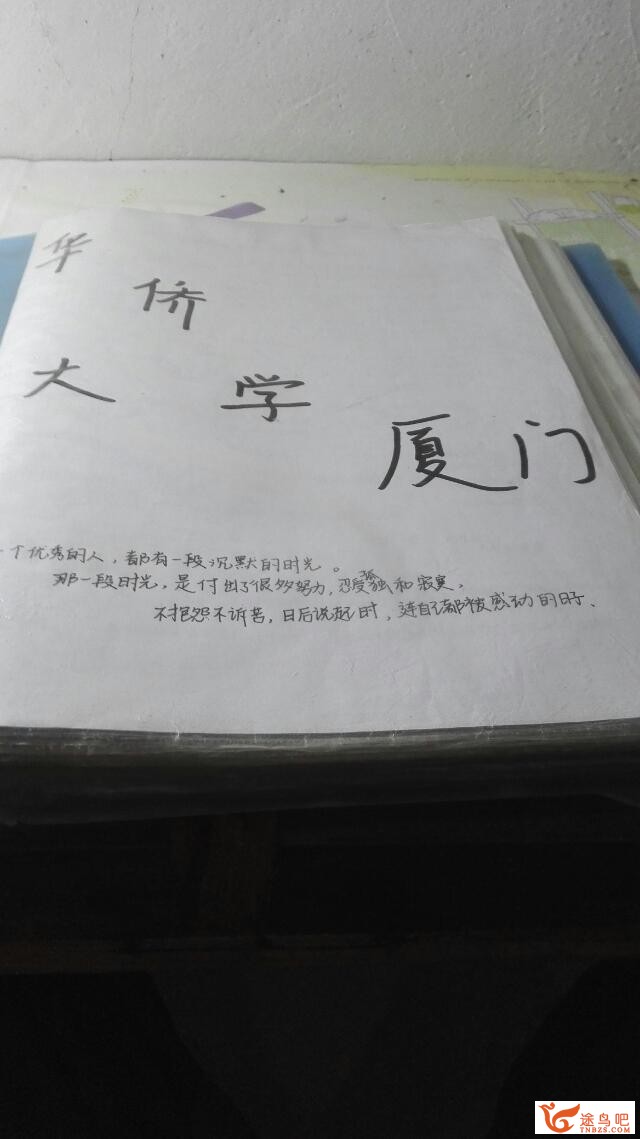 华侨
大学厦门
一个优秀的人，都有一段沉默的时光。
那一段时光，是付出了很多努力，忍受孤独和寂寞，
不抱怨不诉苦，日后说起时，连自己都被感动的日子、
途鸟吧
TNBZS.COM